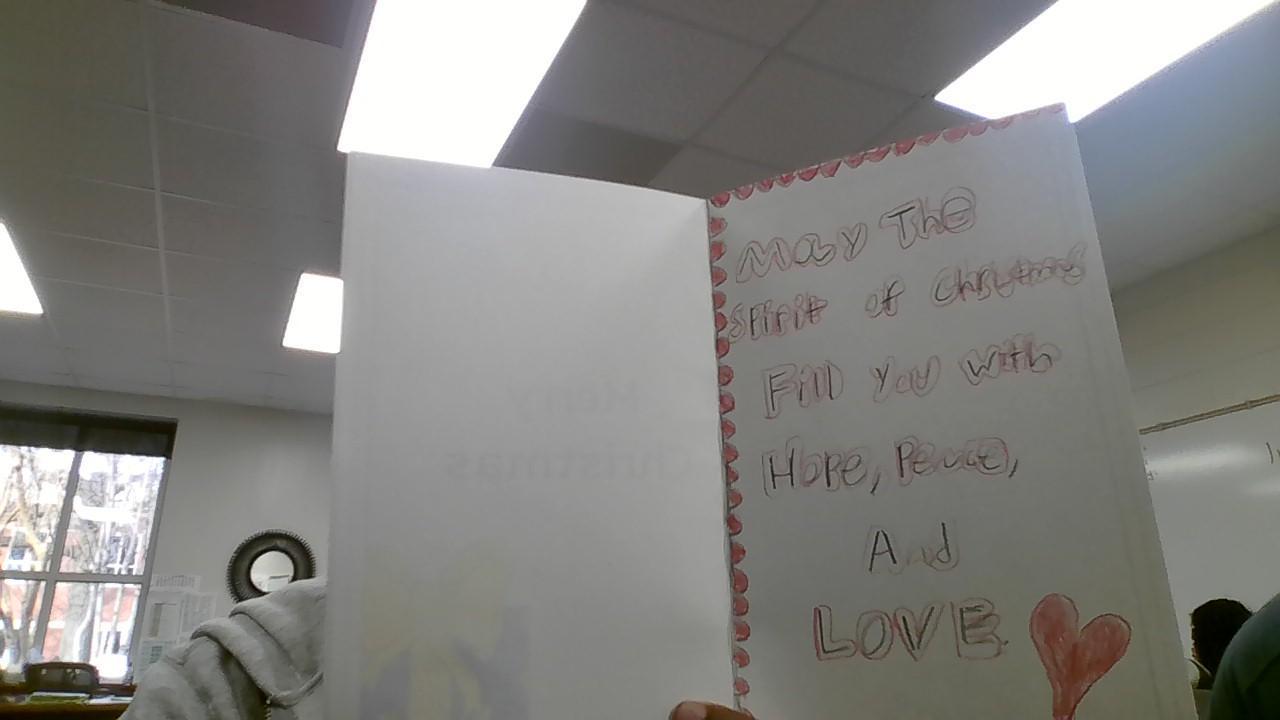 May The
Spirit of Christmas
Fill You With
Hope, Peace,
And
LOVE